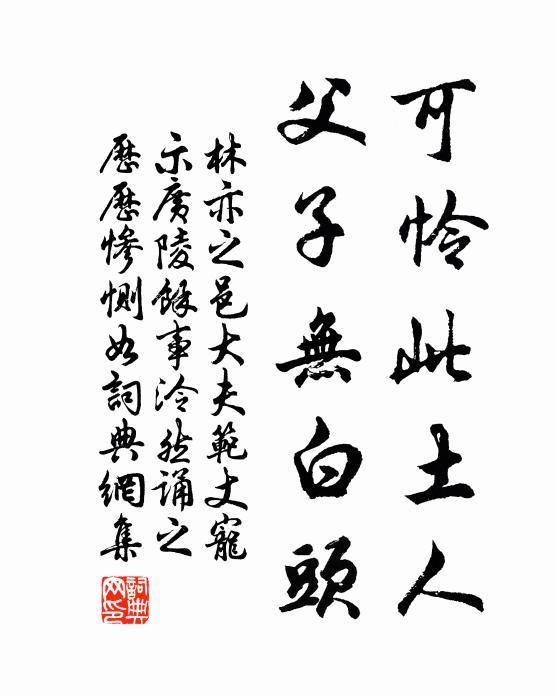 可怜此土人
父子無白頭
林亦之邑大夫範丈寵
示廣陵餘事泠然誦之
歷歷慘惻如詞典網集
詞典
网印